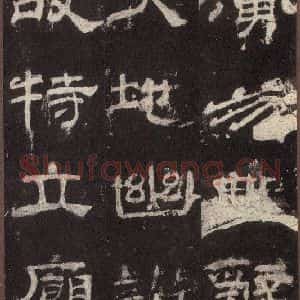 於世辭
地幽讚
故特立廟
Shufawang.CN